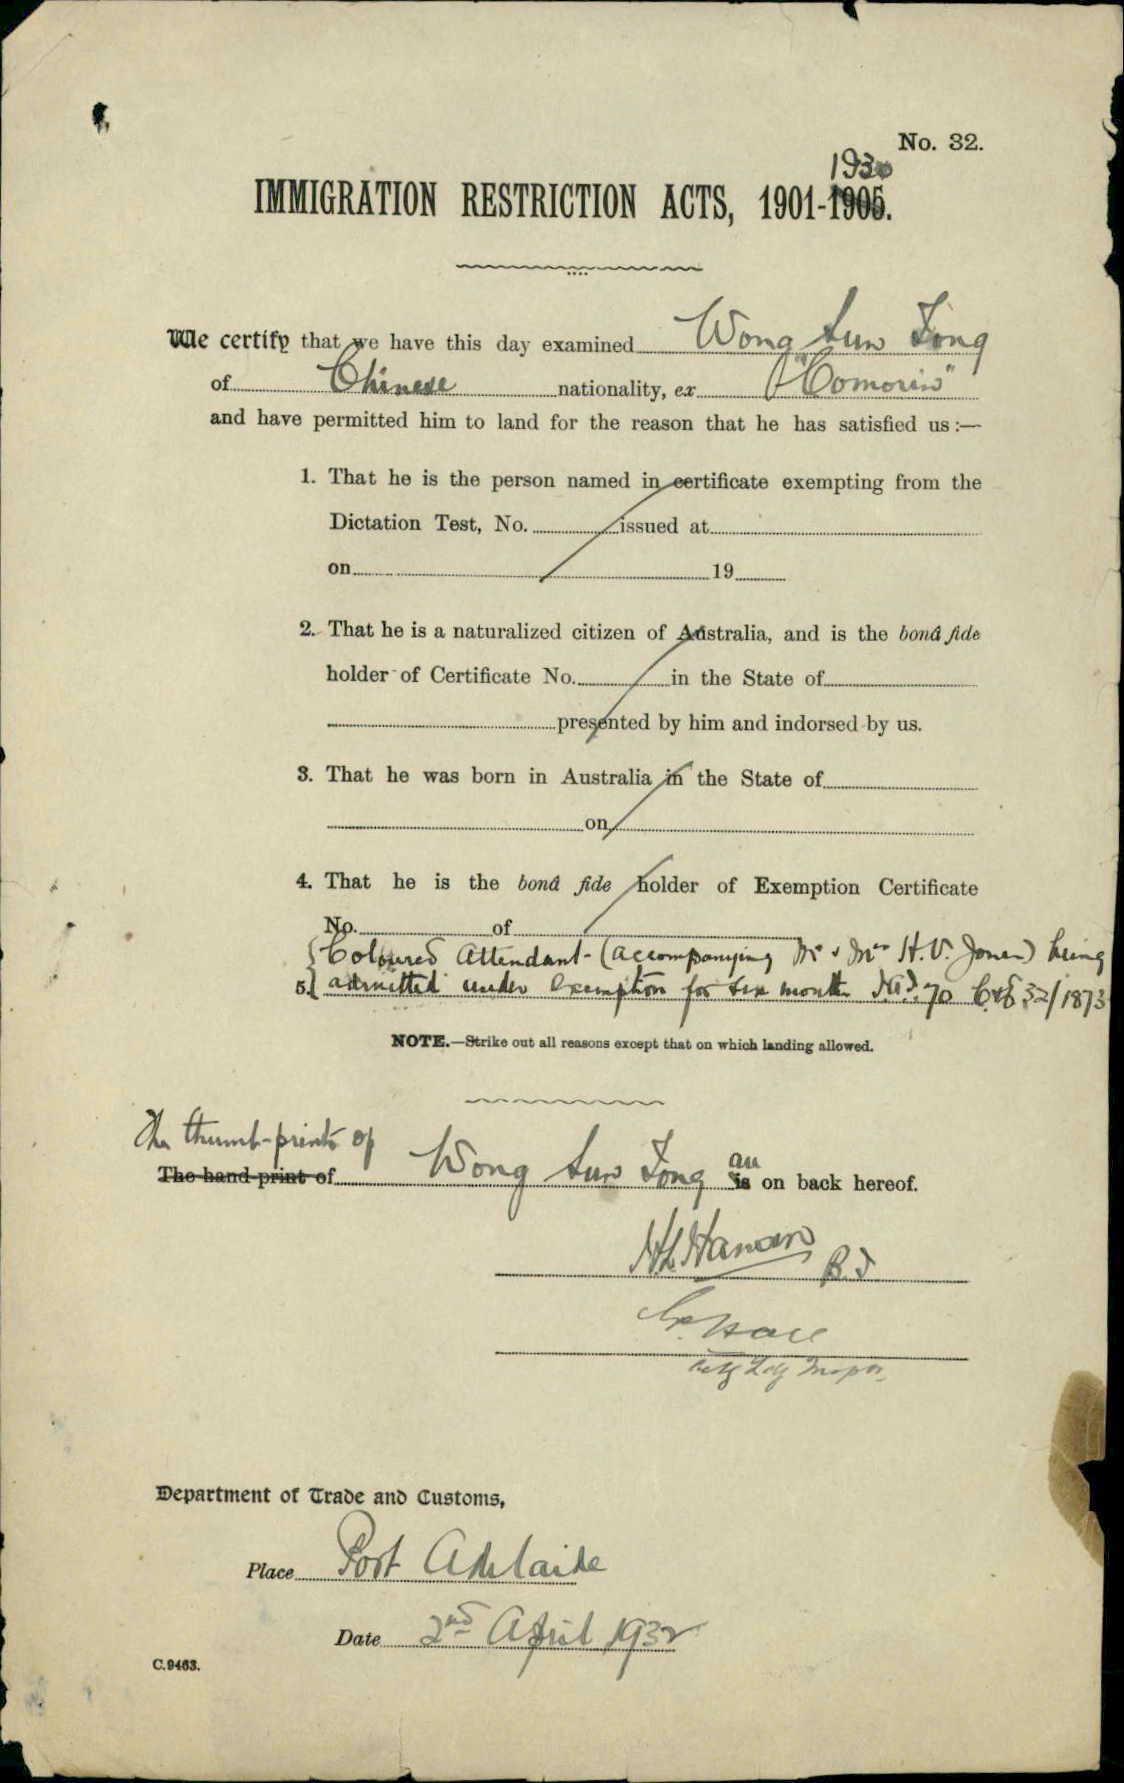 No. 32.
1930
IMMIGRATION RESTRICTION ACTS, 1901-1905.
We certify that we have this day examined Wong Sun Fong
of Chinese nationality, ex "Comorin"
and have permitted him to land for the reason that he has satisfied us :—
1. That he is the person named in certificate exempting from the
Dictation Test, No. issued at
on 19
2. That he is a naturalized citizen of Australia, and is the bonâ fide
holder of Certificate No. in the State of
presented by him and indorsed by us.
3. That he was born in Australia in the State of
on
4. That he is the bonâ fide holder of Exemption Certificate
No. of
{Coloured Attendant- (accompanying Mr & Mrs H.V. Jones) being
5.{ admitted under Exemption for six months 70 C&E 32/1873
NOTE.—Strike out all reasons except that on which landing allowed.
The thumb-prints of
The hand-print of Wong Sun Fong is on back hereof.
H.L.
Department of Trade and Customs,
Place Port Adelaide
Date 2nd April 1932
C.9463.